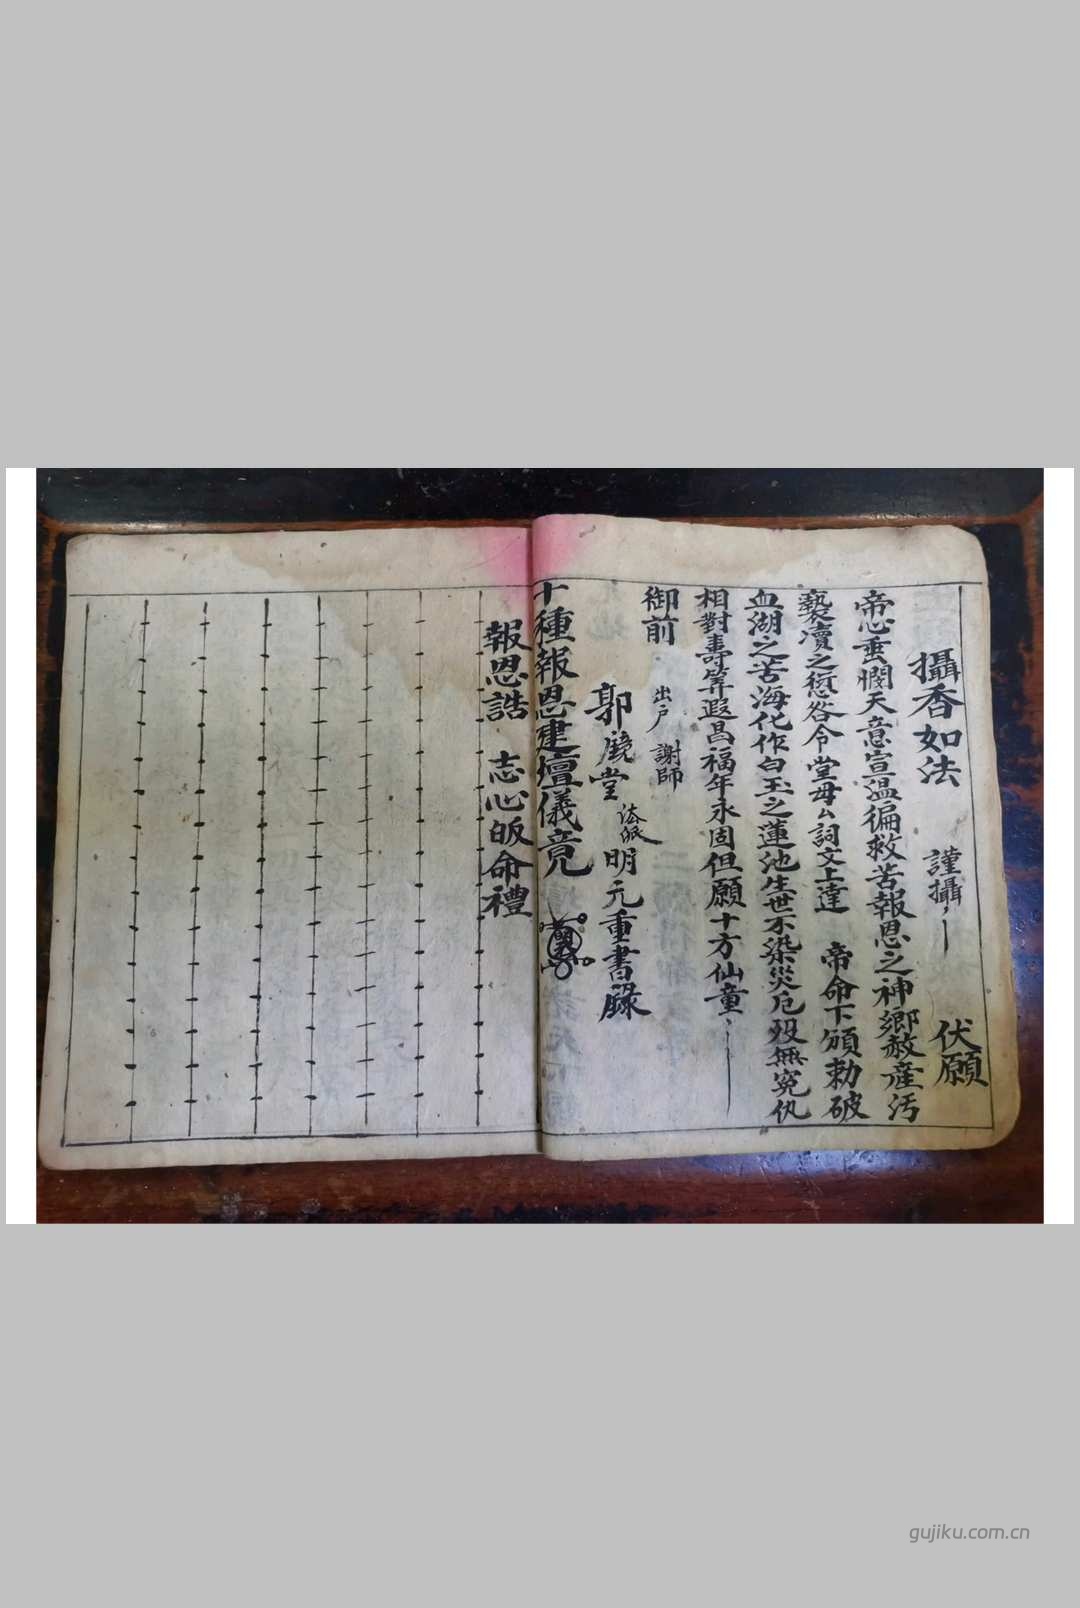 攝香如法 謹攝 伏願
帝心垂憫天意宣温徧救苦報恩之神鄉赦産污
褻瀆之愆咎令堂母厶詞文上達 帝命下頒勅破
血湖之苦海化作白玉之蓮池生世不染災厄歿無冤仇
相對壽筭遐昌福年永固但願十方仙童
御前 出戶 謝師
郭 堂 法派 明元重書錄
十種報恩建壇儀竟
報恩誥 志心皈命禮
gujiku.com.cn